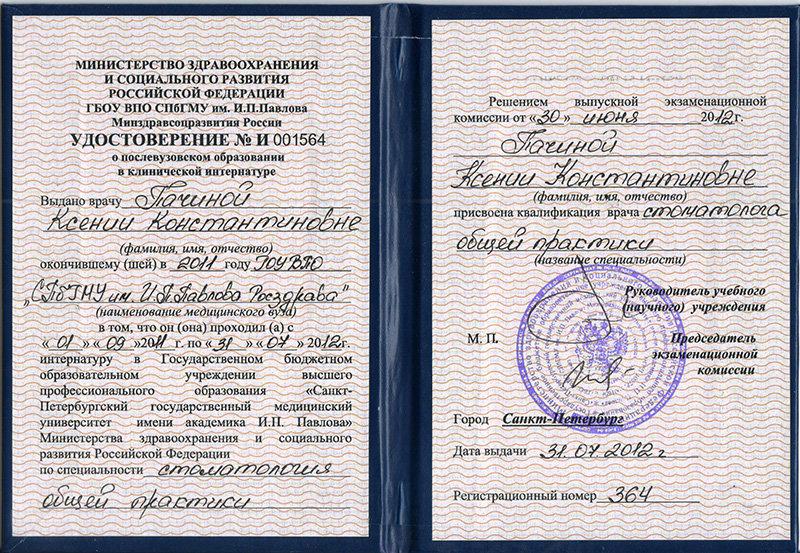 МИНИСТЕРСТВО ЗДРАВООХРАНЕНИЯ
И СОЦИАЛЬНОГО РАЗВИТИЯ
РОССИЙСКОЙ ФЕДЕРАЦИИ
ГБОУ ВПО СПбГМУ им. И.П.Павлова
Минздравсоцразвития России
УДОСТОВЕРЕНИЕ № И 001564
о послевузовском образовании
в клинической интернатуре
Выдано врачу Пачиной
Ксении Константиновне
(фамилия, имя, отчество)
окончившему (шей) в 2011 году ГОУ ВПО
„СПбГМУ им. И.П.Павлова Росздрава"
(наименование медицинского вуза)
в том, что он (она) проходил (а) с
« 01 » « 09 » 2011 г. по « 31 » « 07 » 2012г.
интернатуру в Государственном бюджетном
образовательном учреждении высшего
профессионального образования «Санкт-
Петербургский государственный медицинский
университет имени академика И.П. Павлова»
Министерства здравоохранения и социального
развития Российской Федерации
по специальности стоматология
общей практики
Решением выпускной экзаменационной
комиссии от «30» июня 2012г.
Пачиной
Ксении Константиновне
(фамилия, имя, отчество)
присвоена квалификация врача стоматолога
общей практики
(название специальности)
Руководитель учебного
(научного) учреждения
М. П.
Председатель
экзаменационной
комиссии
Город Санкт-Петербург
Дата выдачи 31.07.2012г.
Регистрационный номер 364